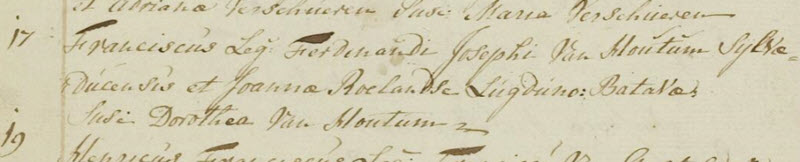 et Adriana Verschueren Susc: Maria Verschueren
17 Franciscus Leg: Ferdinandi Josephi Van Houtum Sylvæ=
ducensis et Joannæ Roelandse Lugduno: Batavæ;
Susc: Dorothea Van Houtum
19 Henricus Franciscus